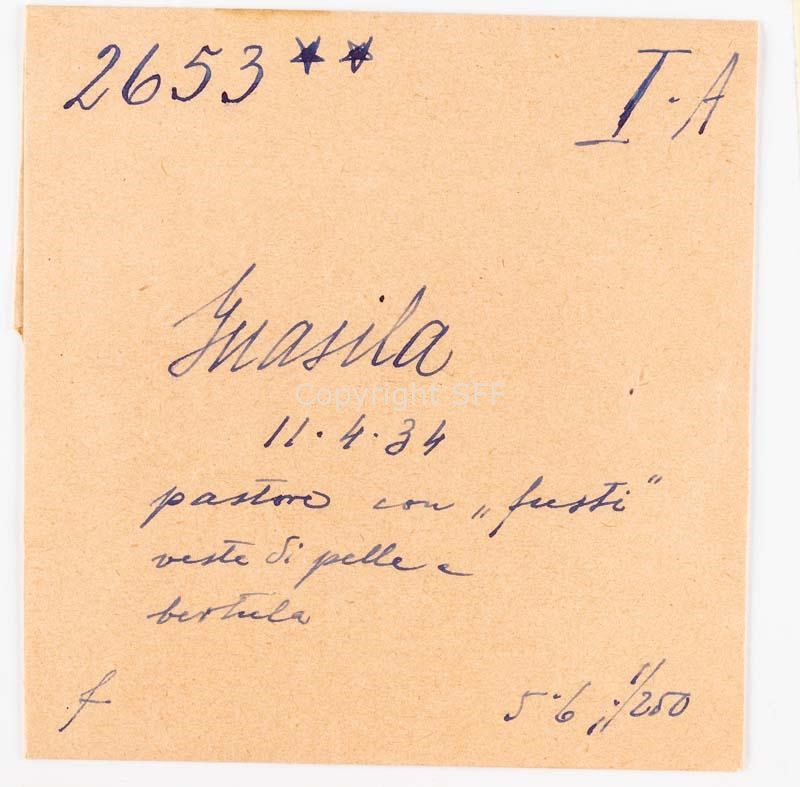 2653** I-A
Guasila
Copyright SFF
11.4.34
pastore con „fusti"
veste di pelle e
bertula
f 5.6 1/250